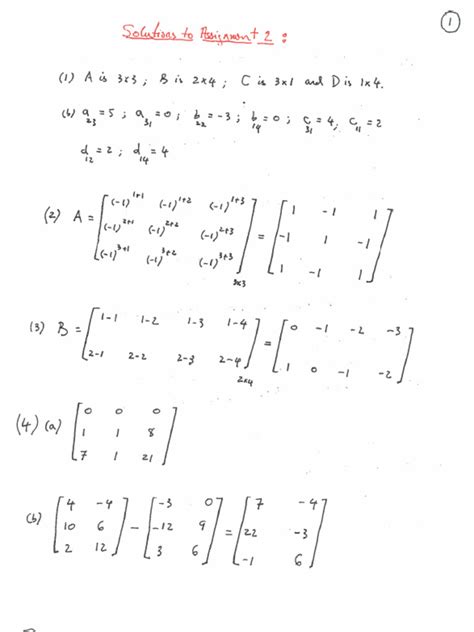 1
Solutions to Assignment 2 :
(1) A is 3x3 ; B is 2x4 ; C is 3x1 and D is 1x4.
(b) a₂₃ = 5 ; a₃₁ = 0 ; b₂₂ = -3 ; b₁₄ = 0 ; c₃₁ = 4 ; c₁₁ = 2
d₁₂ = 2 ; d₁₄ = 4
(2) A = [ (-1)¹⁺¹ (-1)¹⁺² (-1)¹⁺³ ] = [ 1 -1 1 ]
[ (-1)²⁺¹ (-1)²⁺² (-1)²⁺³ ] [ -1 1 -1 ]
[ (-1)³⁺¹ (-1)³⁺² (-1)³⁺³ ] 3x3 [ 1 -1 1 ]
(3) B = [ 1-1 1-2 1-3 1-4 ] = [ 0 -1 -2 -3 ]
[ 2-1 2-2 2-3 2-4 ] 2x4 [ 1 0 -1 -2 ]
(4) (a) [ 0 0 0 ]
[ 1 1 8 ]
[ 7 1 21 ]
(b) [ 4 -4 ] - [ -3 0 ] = [ 7 -4 ]
[ 10 6 ] [ -12 9 ] [ 22 -3 ]
[ 2 12 ] [ 3 6 ] [ -1 6 ]